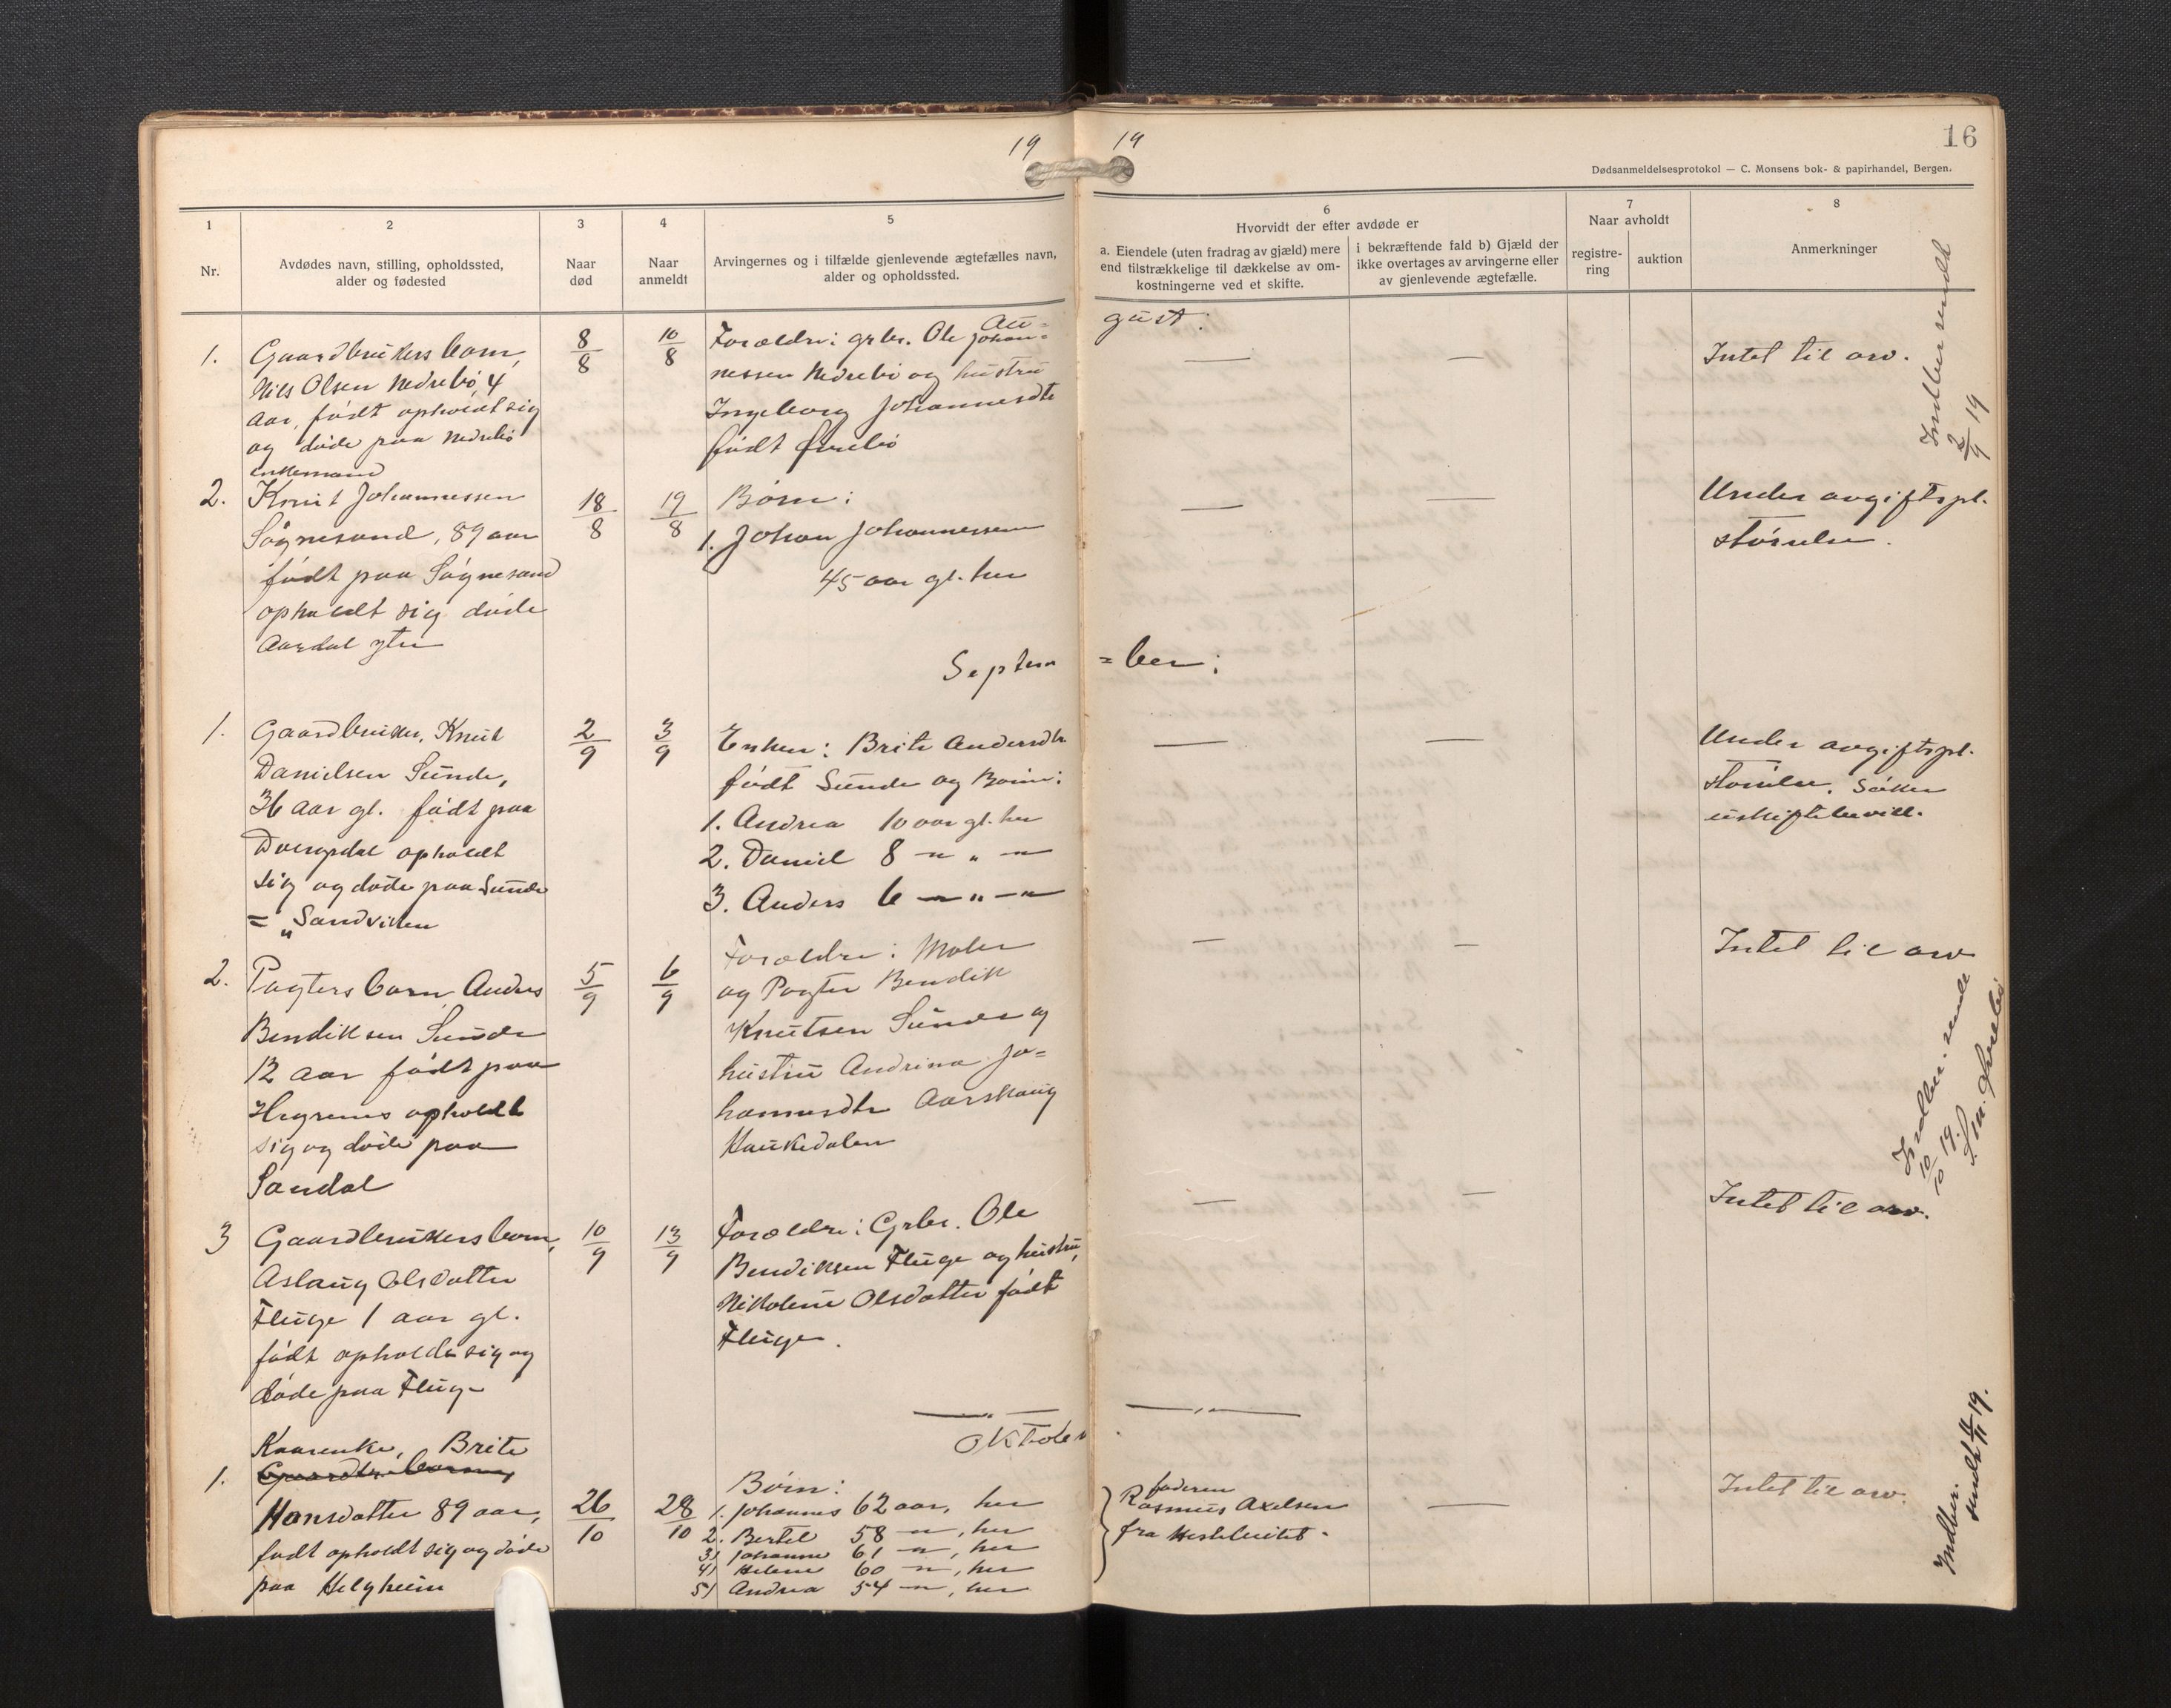 19
19
16
Dødsanmeldelsesprotokol — C. Monsens bok- & papirhandel, Bergen.
1
2
3
4
5
6
7
8
Nr.
Avdødes navn, stilling, opholdssted,
alder og fødested
Naar
død
Naar
anmeldt
Arvingernes og i tilfælde gjenlevende ægtefælles navn,
alder og opholdssted.
Hvorvidt der efter avdøde er
a. Eiendele (uten fradrag av gjæld) mere
end tilstrækkelige til dækkelse av om-
kostningerne ved et skifte.
i bekræftende fald b) Gjæld der
ikke overtages av arvingerne eller
av gjenlevende ægtefælle.
Naar avholdt
registre-
ring
auktion
Anmerkninger
Au=
gust.
1.
Gaardbrukers barn,
Nils Olsen Nedrebö, 4
aar, födt opholdt sig
og döde paa Nedrebö
8/8
10/8
Forældre: grbr. Ole Johan=
nessen Nedrebö og hustru
Ingeborg Johannesdtr
födt
— —
Intet til arv.
Indber sendt
2/9 19
enkemand
2. Knut Johannessen
Sögnesand, 89 aar
födt paa Sögnesand
opholdt sig döde
Aardal ytre
18/8
19/8
Börn:
1. Johan Johannessen
45 aar gl. her
— —
Under avgiftspl.
störrelse.
Septem
=ber:
1. Gaardbruker, Knut
Danielsen Sunde,
36 aar gl. födt paa
opholdt
sig og döde paa Sunde
= „Sandviken
2/9
3/9
Enken: Brite Andersdtr
födt Sunde og Börn:
1. Andrea 10 aar gl. her
2. Daniel 8 —"— " —"—
3. Anders 6 —"— " —"—
— —
Under avgiftspl.
störrelse. Söker
uskiftebevill.
2. Pagters barn Anders
Bendiksen Sunde
12 aar födt paa
opholdt
sig og döde paa
Sandal
5/9
6/9
Forældre: Maler
og Pagter Bendik
Knutsen Sunde og
hustru Andrina Jo=
hannesdtr Aarskaug
Haukedalen
— —
Intet til arv
Indber. sendt
10/10 19.
3 Gaardbrukers barn,
Aslaug Olsdatter
Fluge 1 aar gl.
födt opholdt sig og
döde paa Fluge
10/9
13/9
Forældre: Grbr. Ole
Bendiksen Fluge og hustru,
Nikoline Olsdatter födt
Fluge.
— —
Intet til arv.
Oktober
Kaarenke, Brite
1. Gaardbr. barn,
Hansdatter 89 aar,
födt opholdt sig og döde
paa Helgheim
26/10
28/10
Börn:
1. Johannes 62 aar, her
2. Bertel 58 —"—, her
3) Johanne 61 —"—, her
4) Helene 60 —"—, her
5) Andrea 54 —"—, her
faderen
Rasmus Axelsen
fra
—
Intet til arv.
Indber.
sendt /11 19.